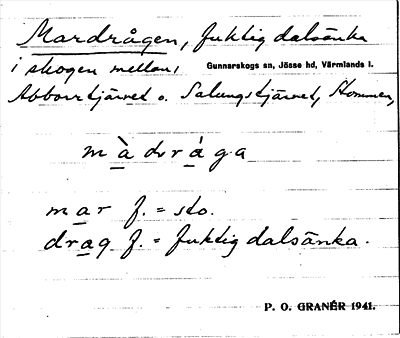 Mardrågen, fuktig dalsänka
i skogen mellan
Gunnarskogs sn, Jösse hd, Värmlands l.
Abborrtjärnet o. Salungstjärnet, Stommen,
m à d r á g a
mar f. = sto.
drag f. = fuktig dalsänka.
P. O. GRANÉR 1941.